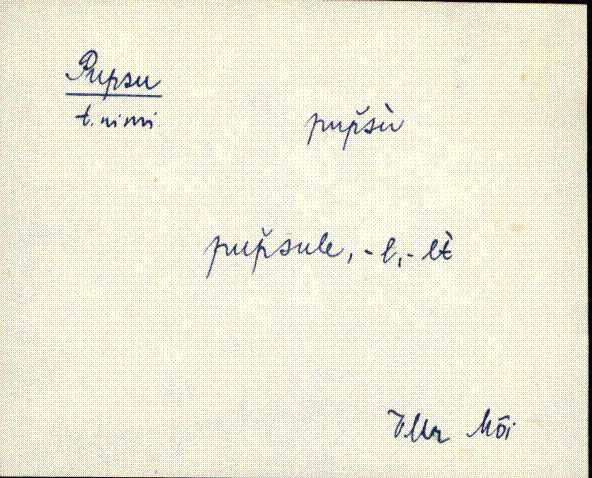 Pupsu
t. nimi
pup̆sù
pup̆sule, -l, -lt̀
VMr Mõi